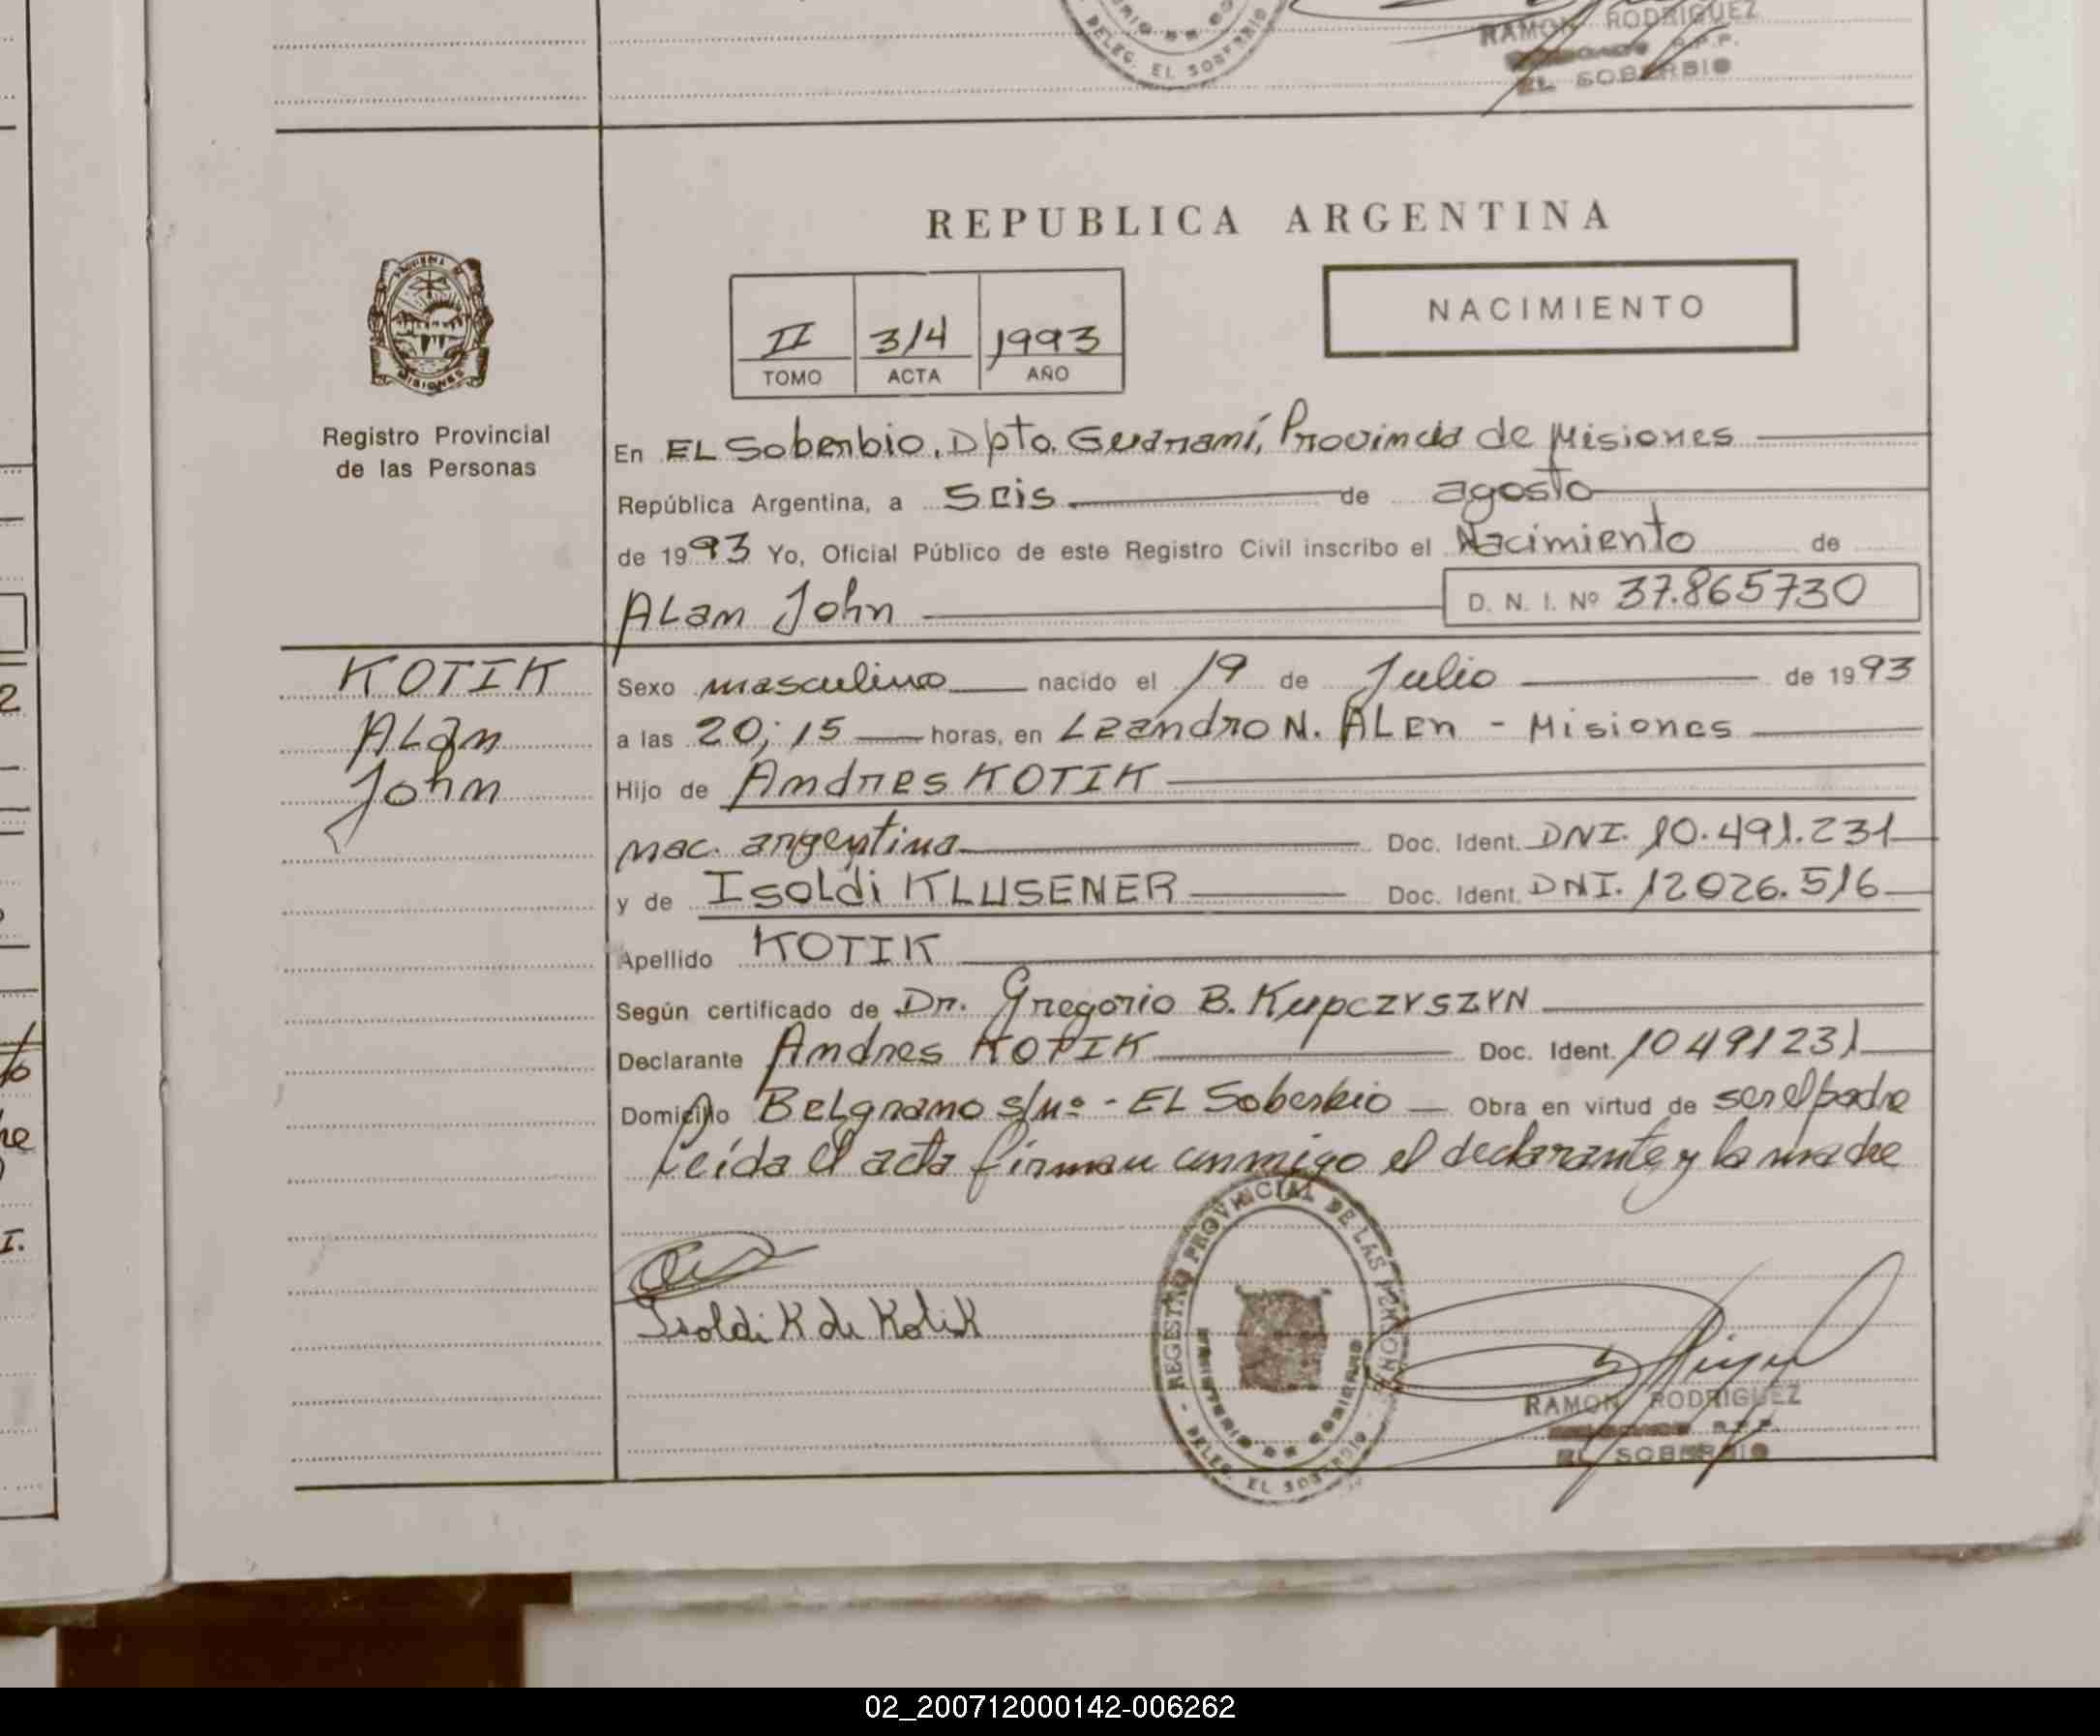 RAMON RODRIGUEZ
R.P.P.
EL SOBERBIO
DELEG. EL SOBERBIO
REPUBLICA ARGENTINA
NACIMIENTO
II 314 1993
TOMO ACTA AÑO
MISIONES
Registro Provincial
de las Personas
En EL Soberbio, Dpto. Guaraní, Provincia de Misiones
República Argentina, a seis de agosto
de 1993 Yo, Oficial Público de este Registro Civil inscribo el Nacimiento de
ALan John D. N. I. Nº 37.865730
KOTIK
ALan
John
Sexo masculino nacido el 19 de Julio de 1993
a las 20;15 horas, en Leandro N. ALEn - Misiones
Hijo de Andres KOTIK
nac. argentina Doc. Ident. DNI. 10.491.231
y de IsoLdi KLUSENER Doc. Ident. DNI. 12026.516
Apellido KOTIK
Según certificado de Dr. Gregorio B. KupczYSZYN
Declarante Andres KOTIK Doc. Ident. 10491231
Domicilio BeLgrano s/nº - EL Soberbio Obra en virtud de ser el padre
Leída el acta firman conmigo el declarante y la madre
Isoldi K de Kotik
REGISTRO PROVINCIAL DE LAS PERSONAS
MINISTERIO DE GOBIERNO
DELEG. EL SOBERBIO
RAMON RODRIGUEZ
R.P.P.
EL SOBERBIO
02_200712000142-006262